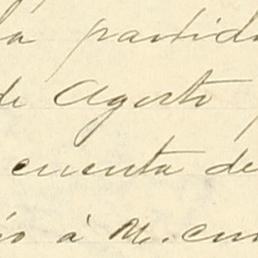 a partid
de Agosto
cuenta de
io à M. cu